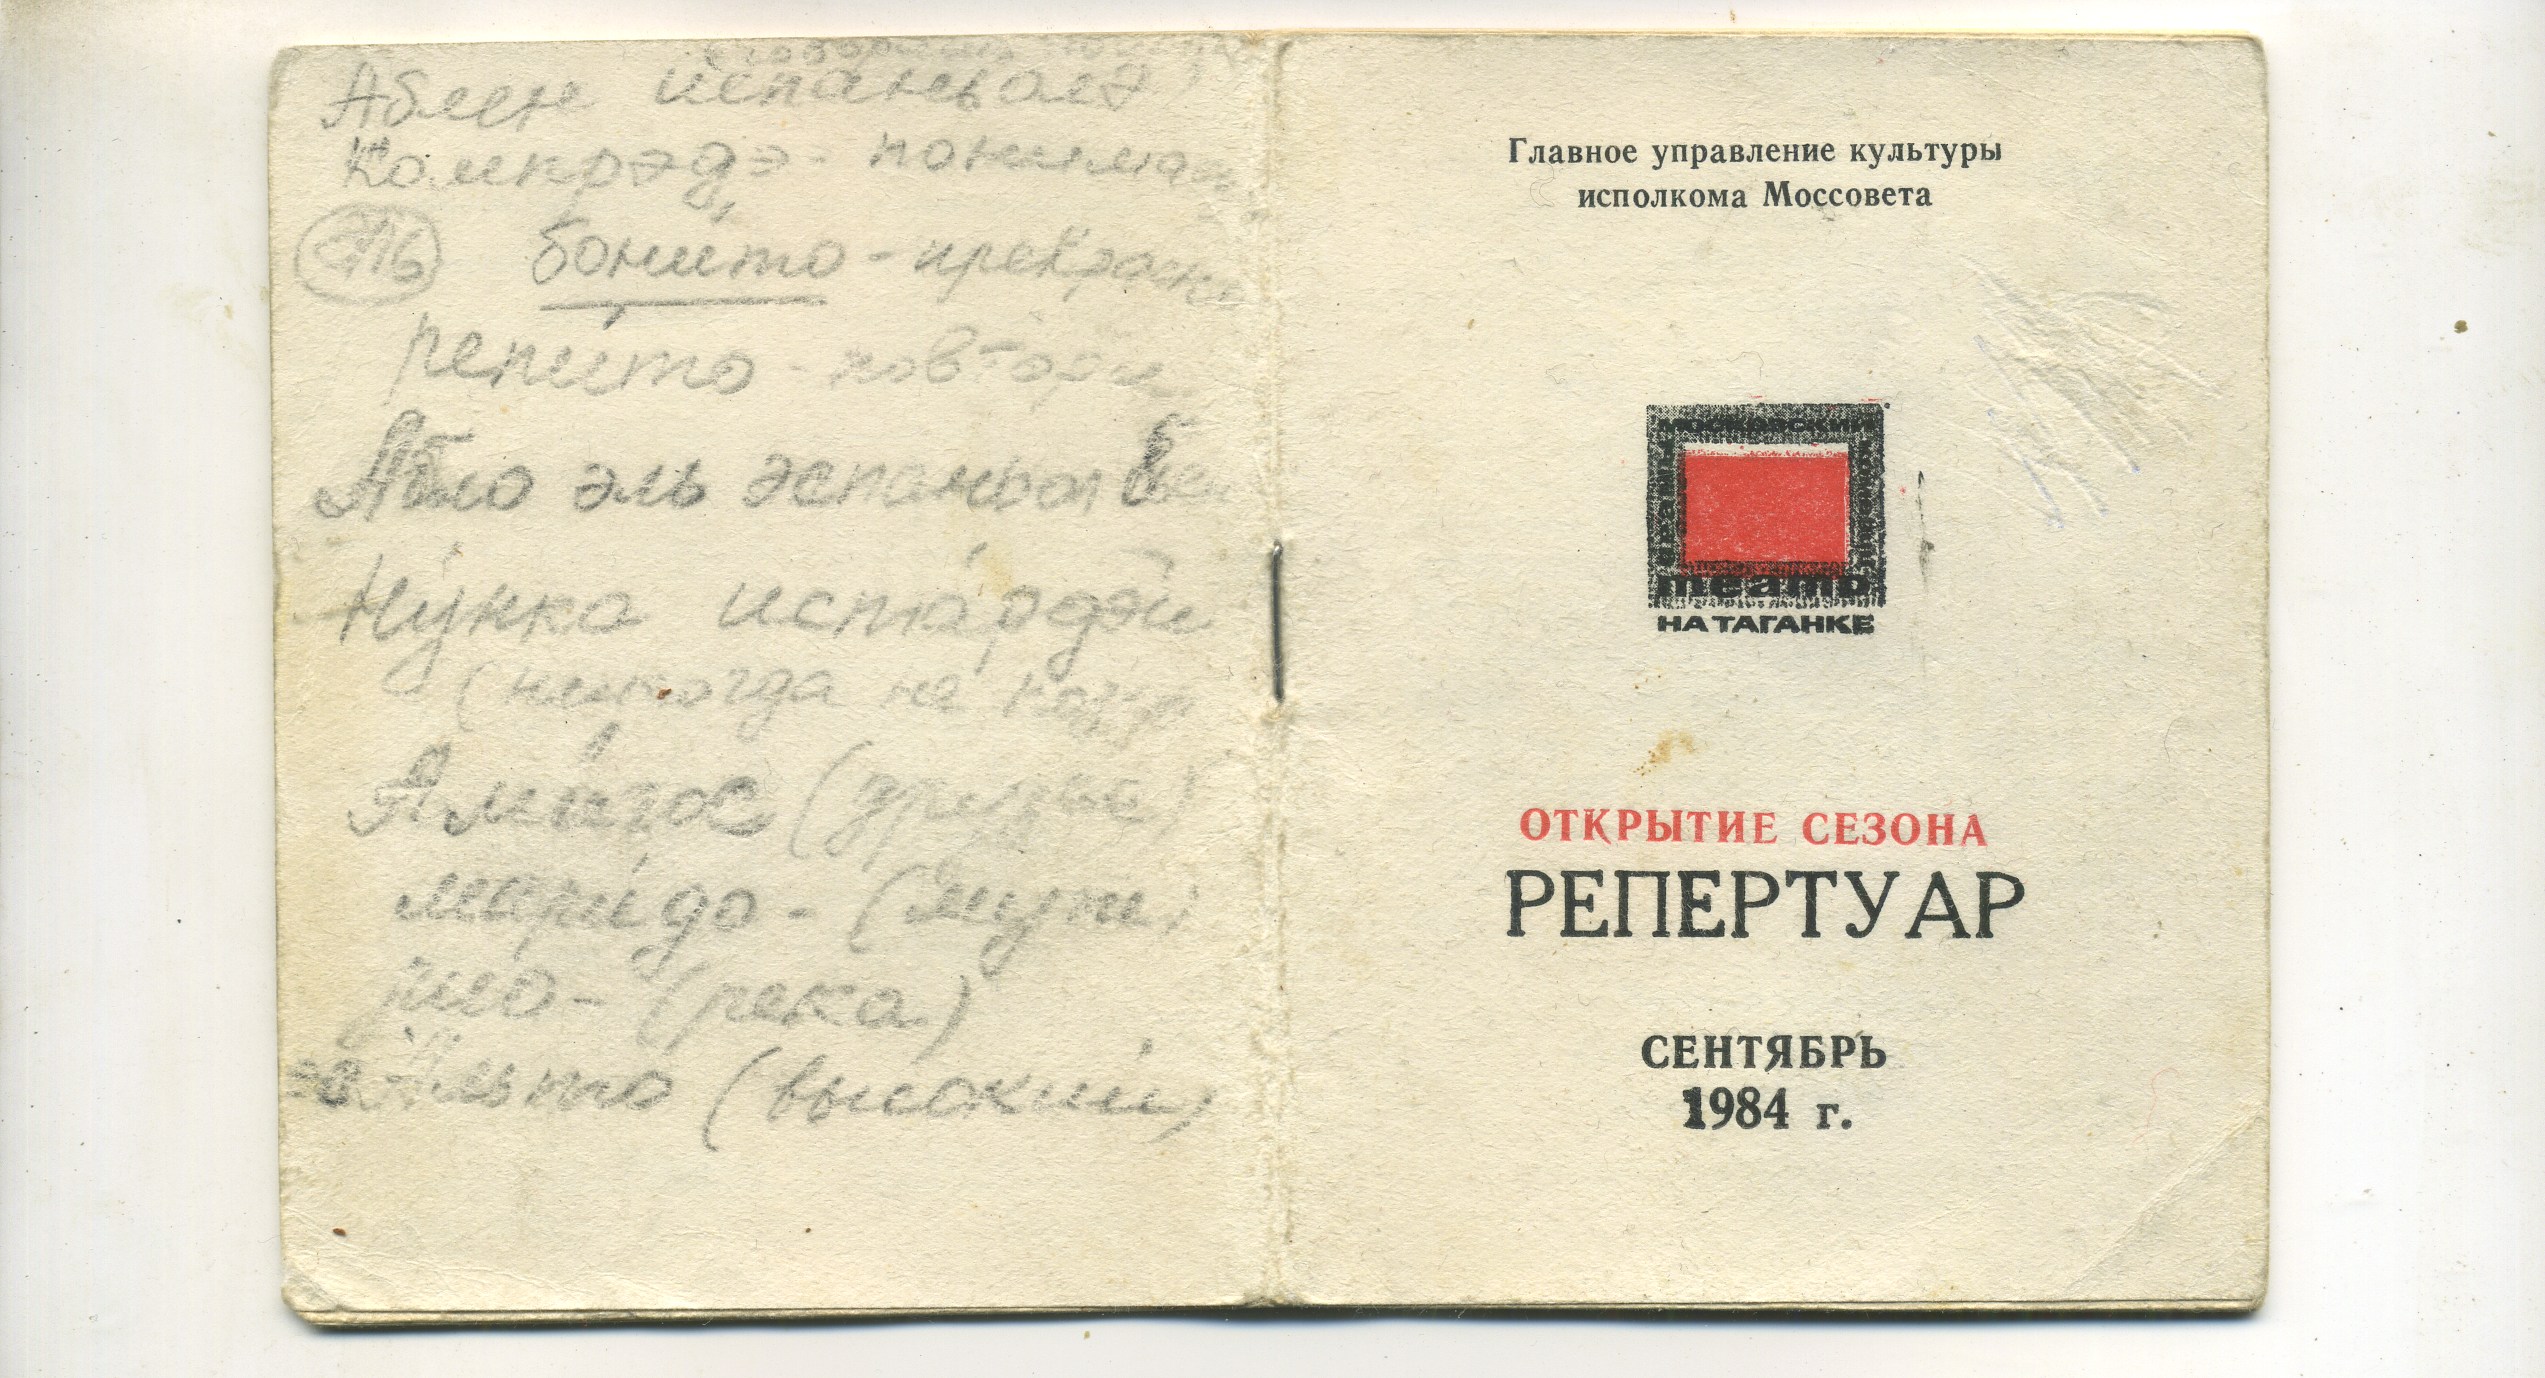 Аблен испаньолэ
Компрэдэ - понимать
бонито - прекрасно
репито - повтори
Абло эль эспаньол
Нунка испардэй
(никогда не
Амигос (друзья)
маридо - (муж)
рио - (река)
Альто (высокий)
Главное управление культуры
исполкома Моссовета
МОСКОВСКИЙ
театр
НА ТАГАНКЕ
ОТКРЫТИЕ СЕЗОНА
РЕПЕРТУАР
СЕНТЯБРЬ
1984 г.